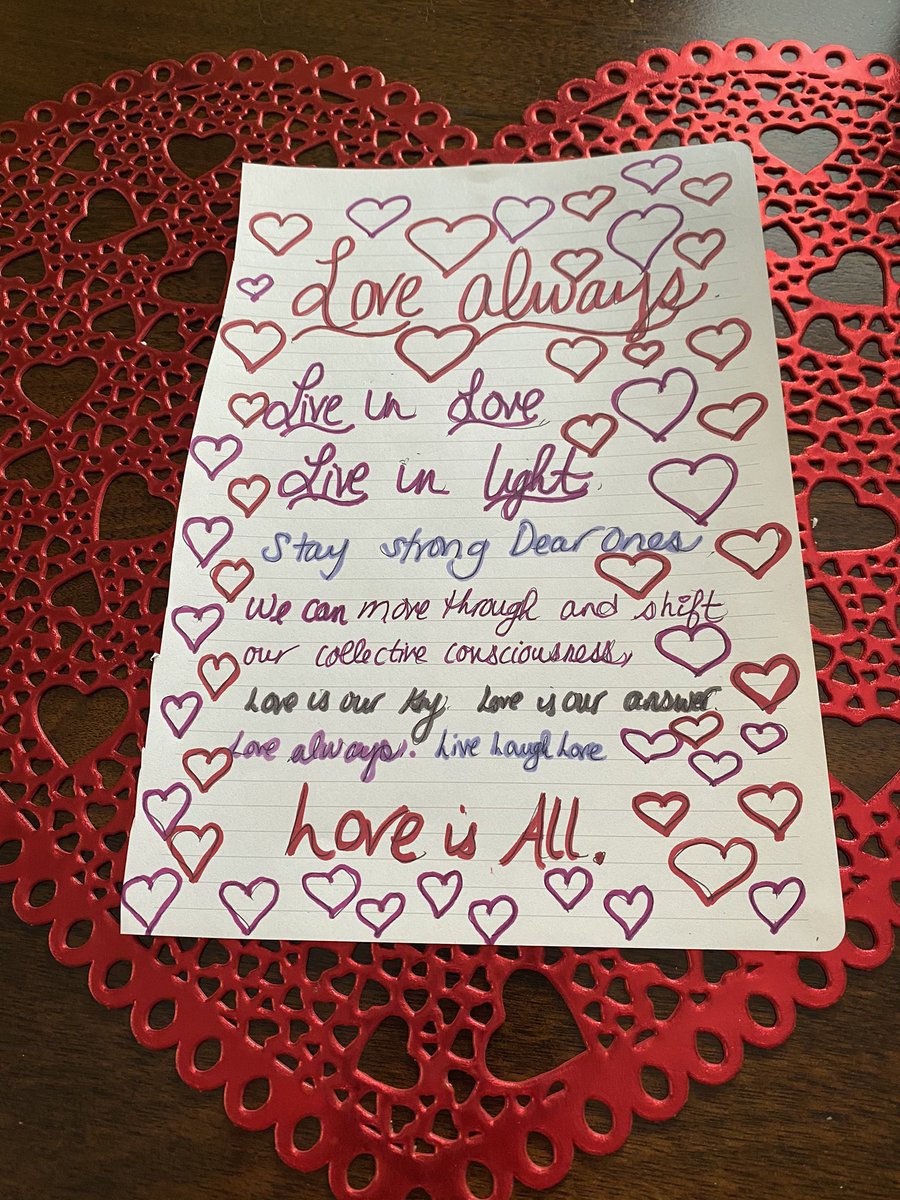 Love always
Live in Love
Live in light.
Stay strong Dear Ones
We can move through and shift
our collective consciousness,
Love is our Key. Love is our answer.
Love always. Live Laugh Love
Love is All.